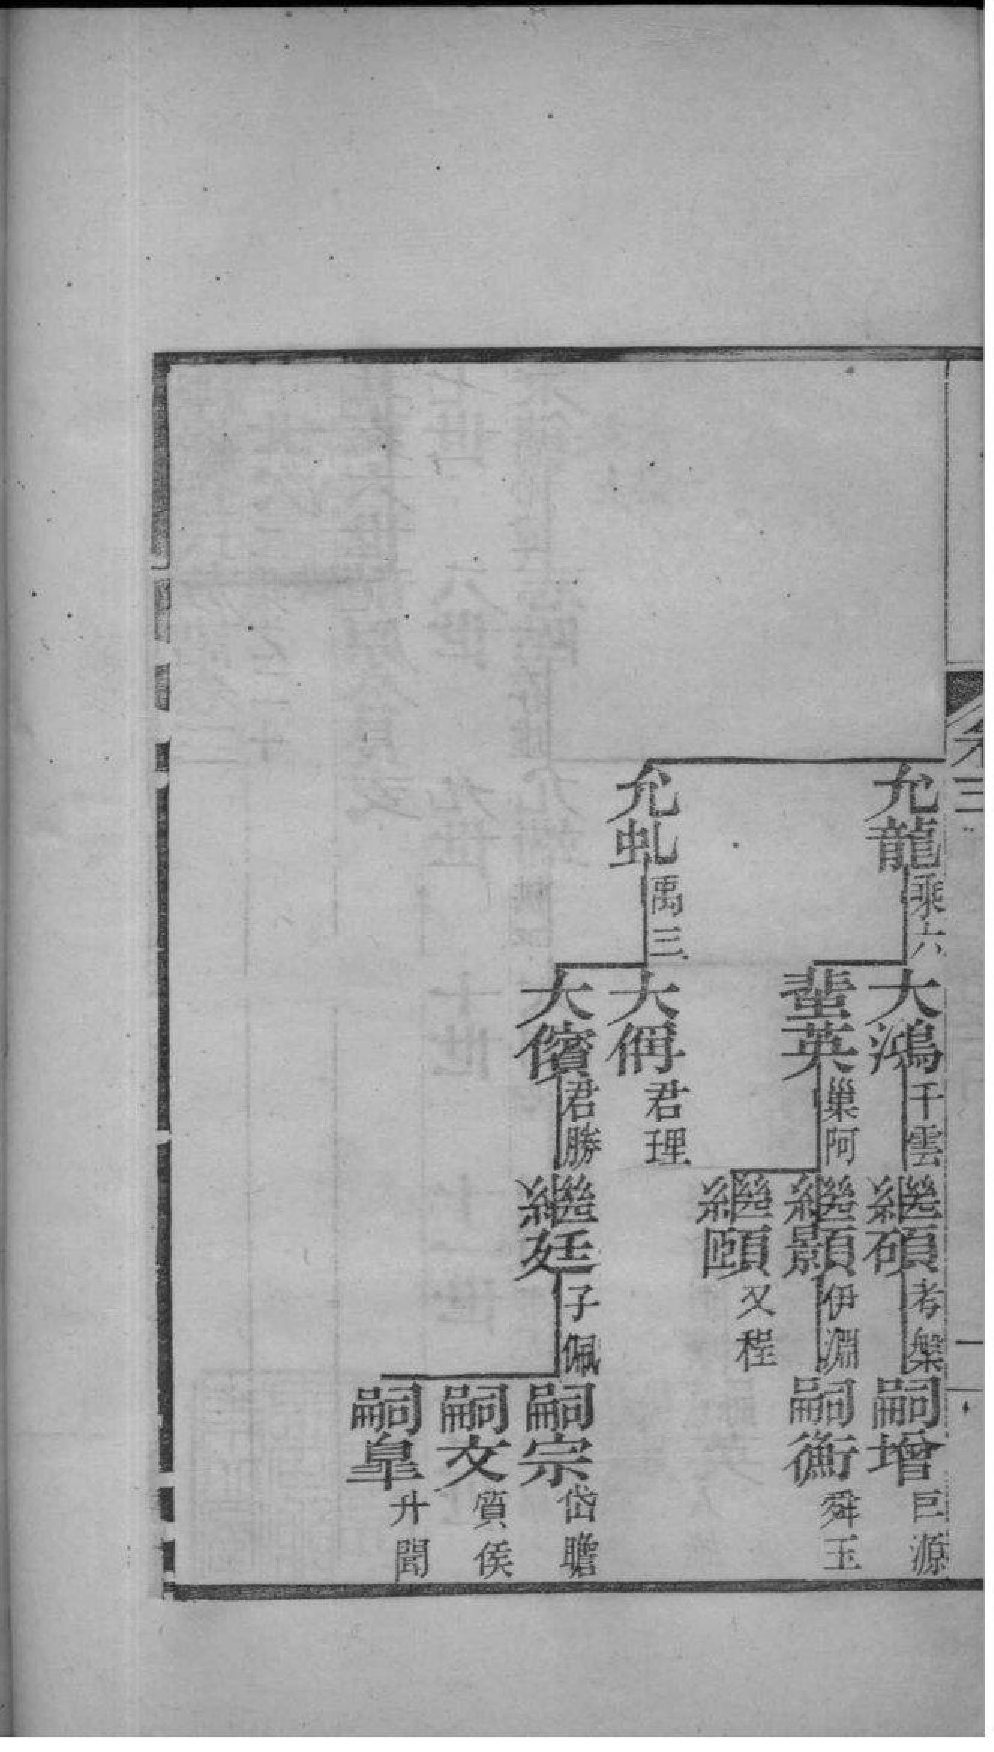 卷三
允龍 乘六
大鴻 千雲
繼碩 考槃
嗣增 巨源
蜚英 巢阿
繼顯 伊淵
嗣衡 舜玉
繼頤 又程
允虬 禹三
大偁 君理
大儐 君勝
繼廷 子佩
嗣宗 岱瞻
嗣文 質侯
嗣皐 升聞